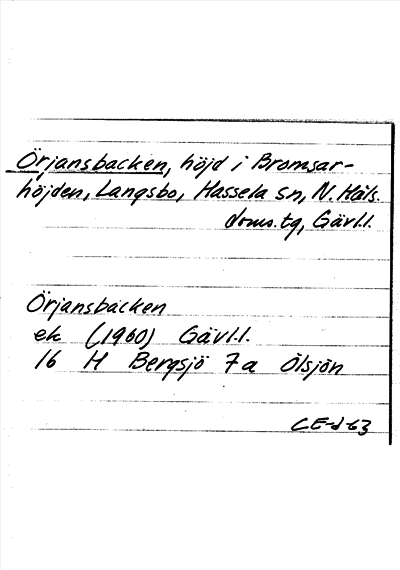 Örjansbacken, höjd i Bromsar-
höjden, Långsbo, Hassela sn, N. Häls.
doms.tg, Gävl.l.
Örjansbacken
ek (1960) Gävl.l.
16 H Bergsjö 7a Ölsjön
CE-d-63